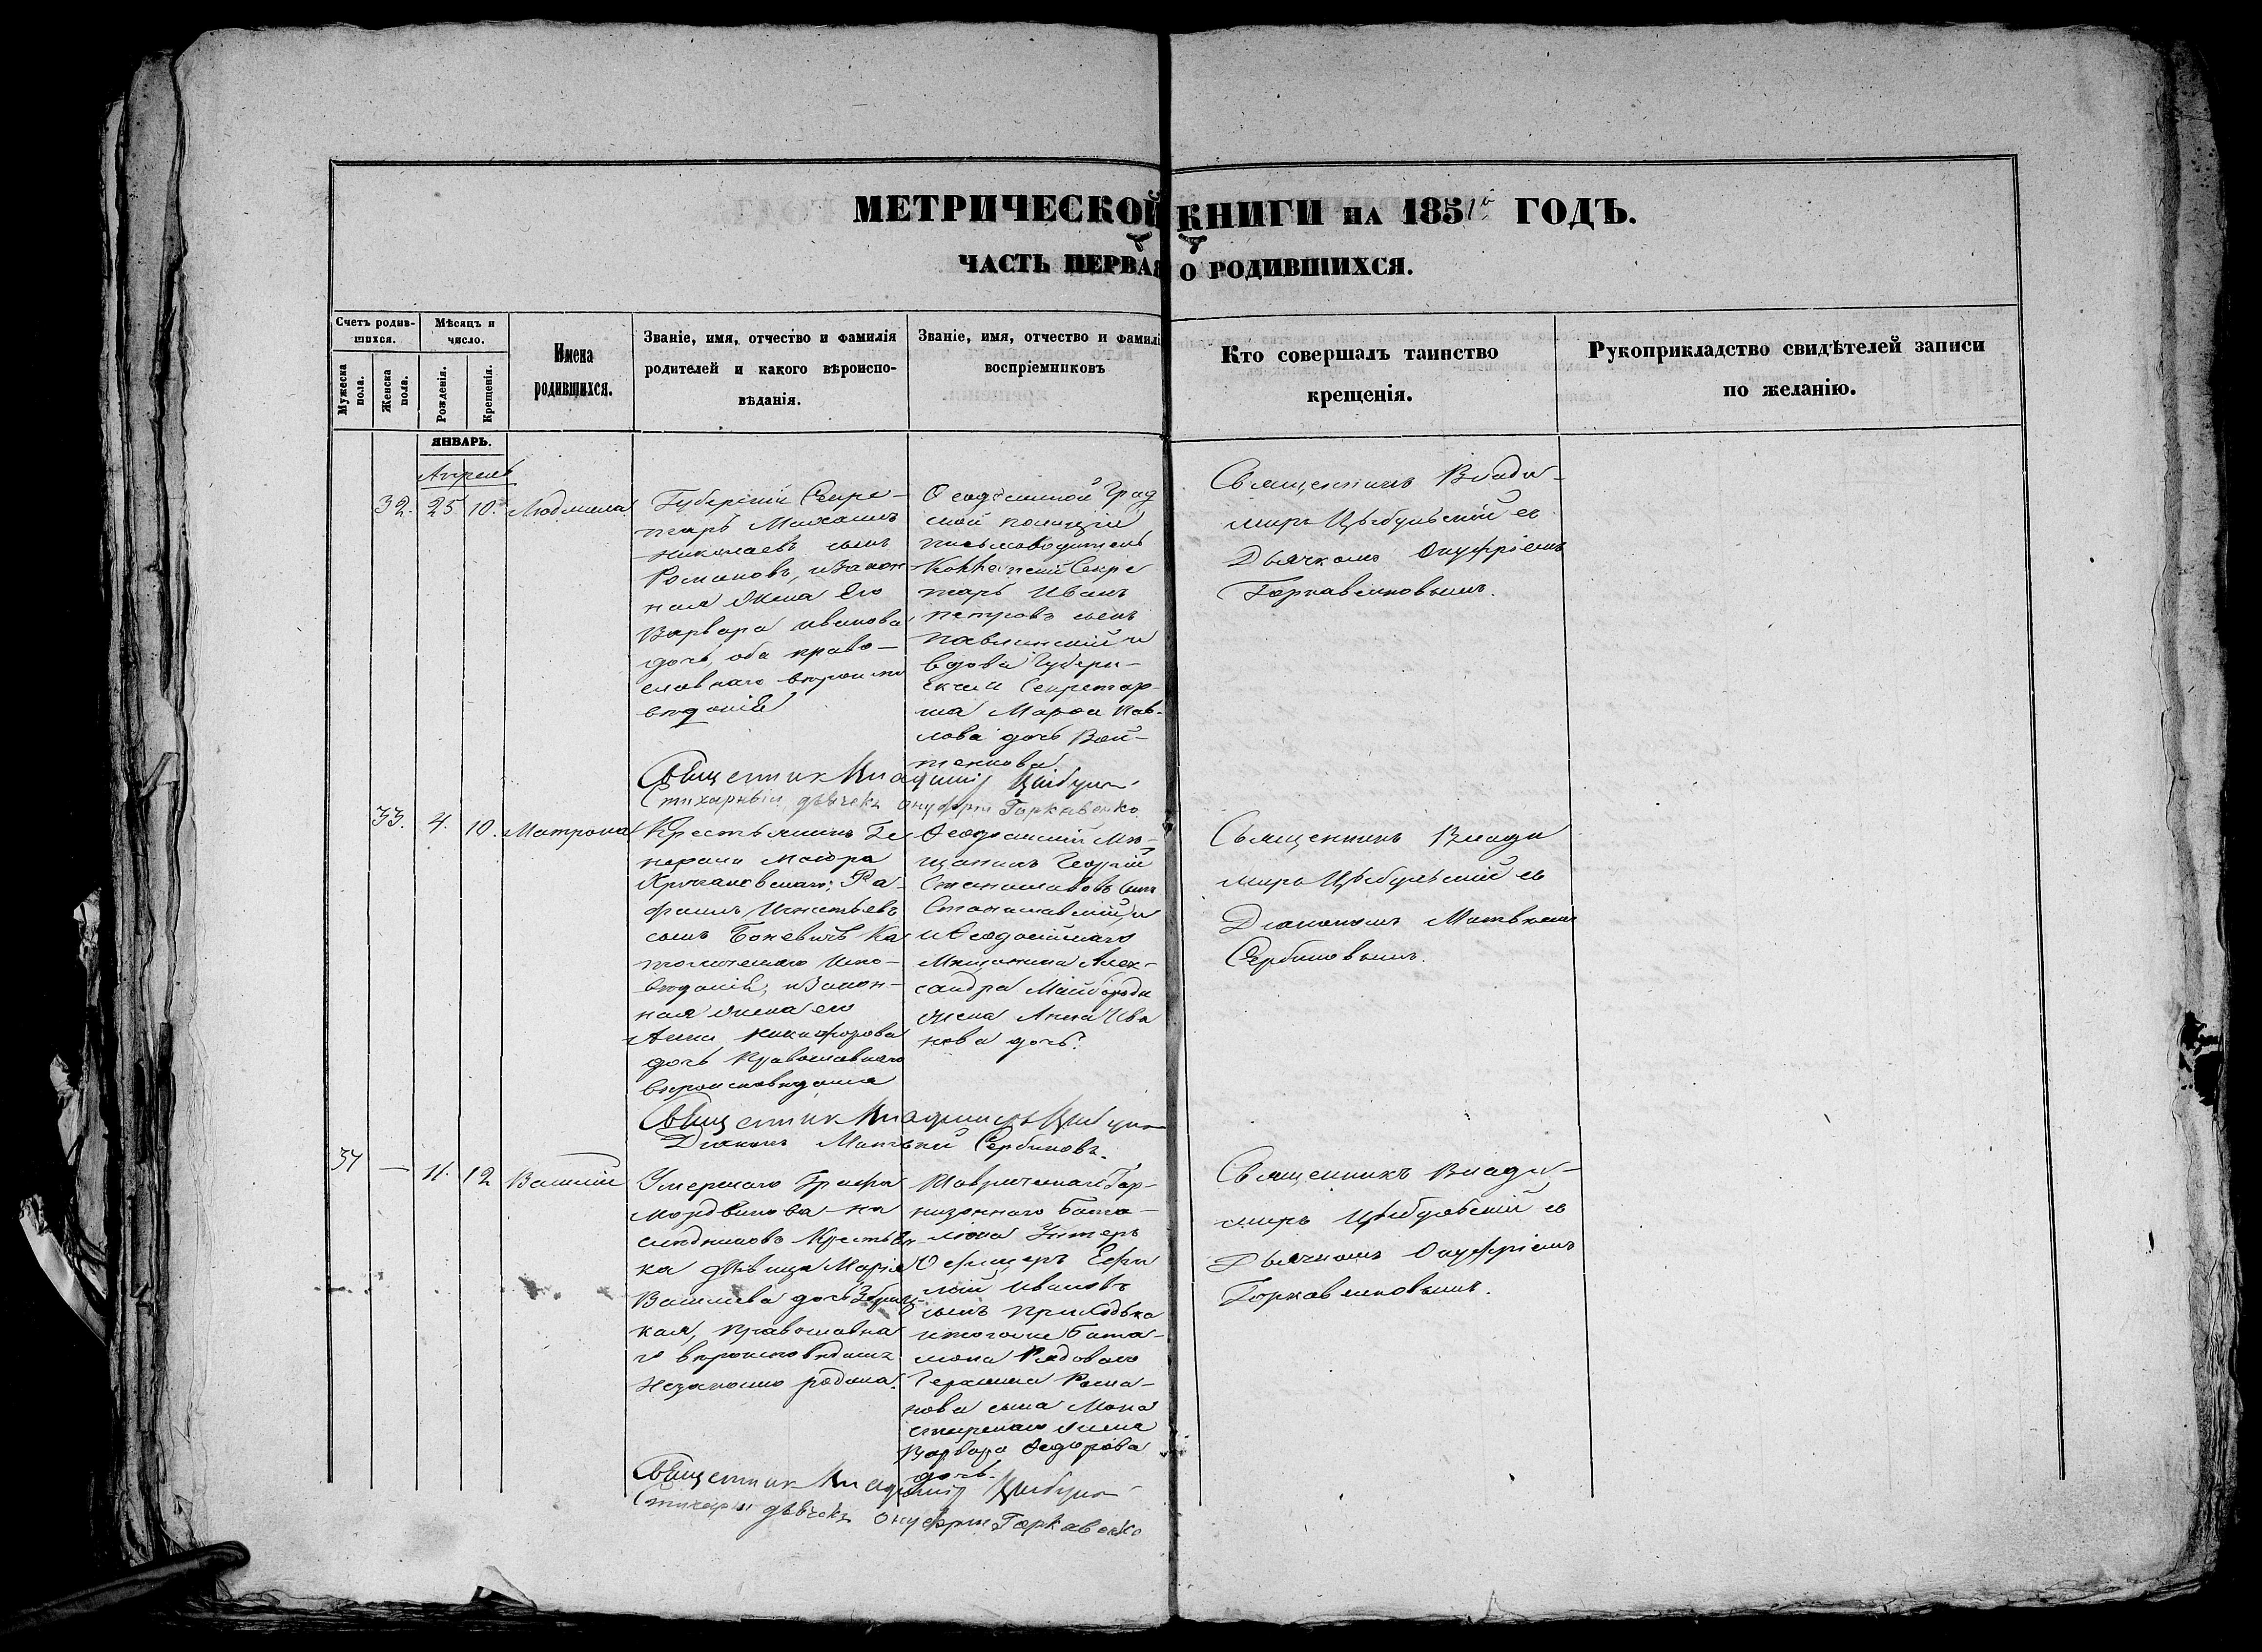 МЕТРИЧЕСКОЙ КНИГИ НА 1851 ГОДЪ.
ЧАСТЬ ПЕРВАЯ О РОДИВШИХСЯ.
Счетъ родив-
шихся.
Мужеска
пола.
Женска
пола.
Мѣсяцъ и
число.
Рожденія.
Крещенія.
Имена
родившихся.
Званіе, имя, отчество и фамилія
родителей и какого вѣроиспо-
вѣданія.
Званіе, имя, отчество и фамилі
воспріемниковъ
Кто совершалъ таинство
крещенія.
Рукоприкладство свидѣтелей записи
по желанію.
ЯНВАРЬ.
Апрель
32. 25 10. Людмила
Губернскій Секре-
тарь Михаилъ
Николаевъ сынъ
Романовъ, и Закон-
ная Жена Его
Варвара Иванова
дочь, оба право-
славнаго вѣроиспо
вѣданія
Ѳеодосійской Град
ской полиціи
письмоводитель
Коллежскій Секре
тарь Иванъ
Петровъ сынъ
Павлинскій и
вдова Губерн-
ская Секретар-
ша Марѳа Пав-
лова дочь Вой-
тенкова
Священникъ Влади-
миръ Цыбульскій съ
Дьячкомъ Онуфріемъ
Горкавенковымъ.
Священник Владимір Цибул
Стихарный дьячекъ Онуфрій Горкавенко
33. 4. 10. Матрона
Крестьянинъ Ге
нерала Маіора
Игнатьевъ
сынъ Боневичъ Ка
толическаго Испо-
вѣданія, и Закон-
ная жена его
Анна Никифорова
дочь Православнаго
вѣроисповѣданія
Ѳеодосійскій Мѣ-
щанинъ Георгій
Станиславовъ сынъ
Станиславскій, и
и Ѳеодосійскаго
Мещанина Алек-
сандра Майбороди
жена Анна Ива
нова дочь.
Священникъ Влади
миръ Цыбульскій съ
Діакономъ Матвѣемъ
Сербиновымъ.
Священник Владимір Цибул
Діаконъ Матѳѣй Сербиновъ.
34 — 11. 12 Василій
Умершаго Графа
Мордвинова на
слѣдниковъ Крестьян
ка дѣвица Марія
Василиева дочь
кая, православна
го вѣроисповѣданія
Незаконно родила.
Таврическаго Гар-
низоннаго Бата-
ліона Унтеръ
Офицеръ Ефи
мій Ивановъ
сынъ Приходька
и тогоже Бата-
ліона Рядоваго
Герасима Рома-
нова сына Мона
стырскаго жена
Варвара Ѳедорова
дочь.
Священникъ Влади-
миръ Цыбульскій съ
Дьячкомъ Онуфріемъ
Горкавенковымъ.
Священник Владимір Цибул
Стихарны дьячекъ Онуфрій Горкавенко